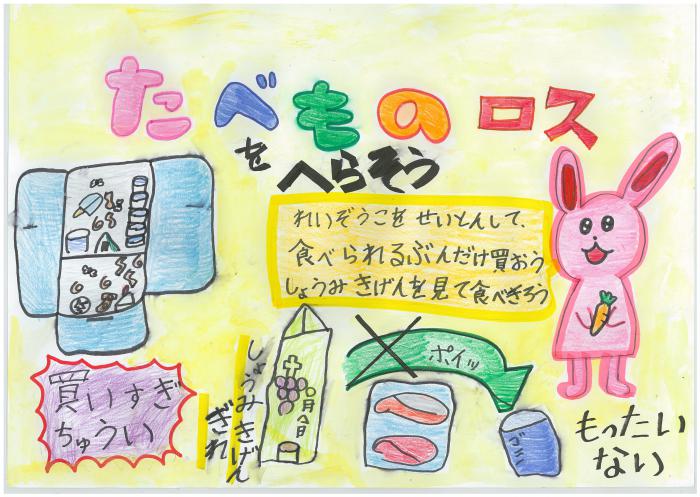 たべもの ロス
を
へらそう
れいぞうこをせいとんして、
食べられるぶんだけ買おう
しょうみきげんを見て食べきろう
買いすぎ
ちゅうい
しょうみきげん
ぎれ
○月△日
ポイッ
ゴミ
もったい
ない